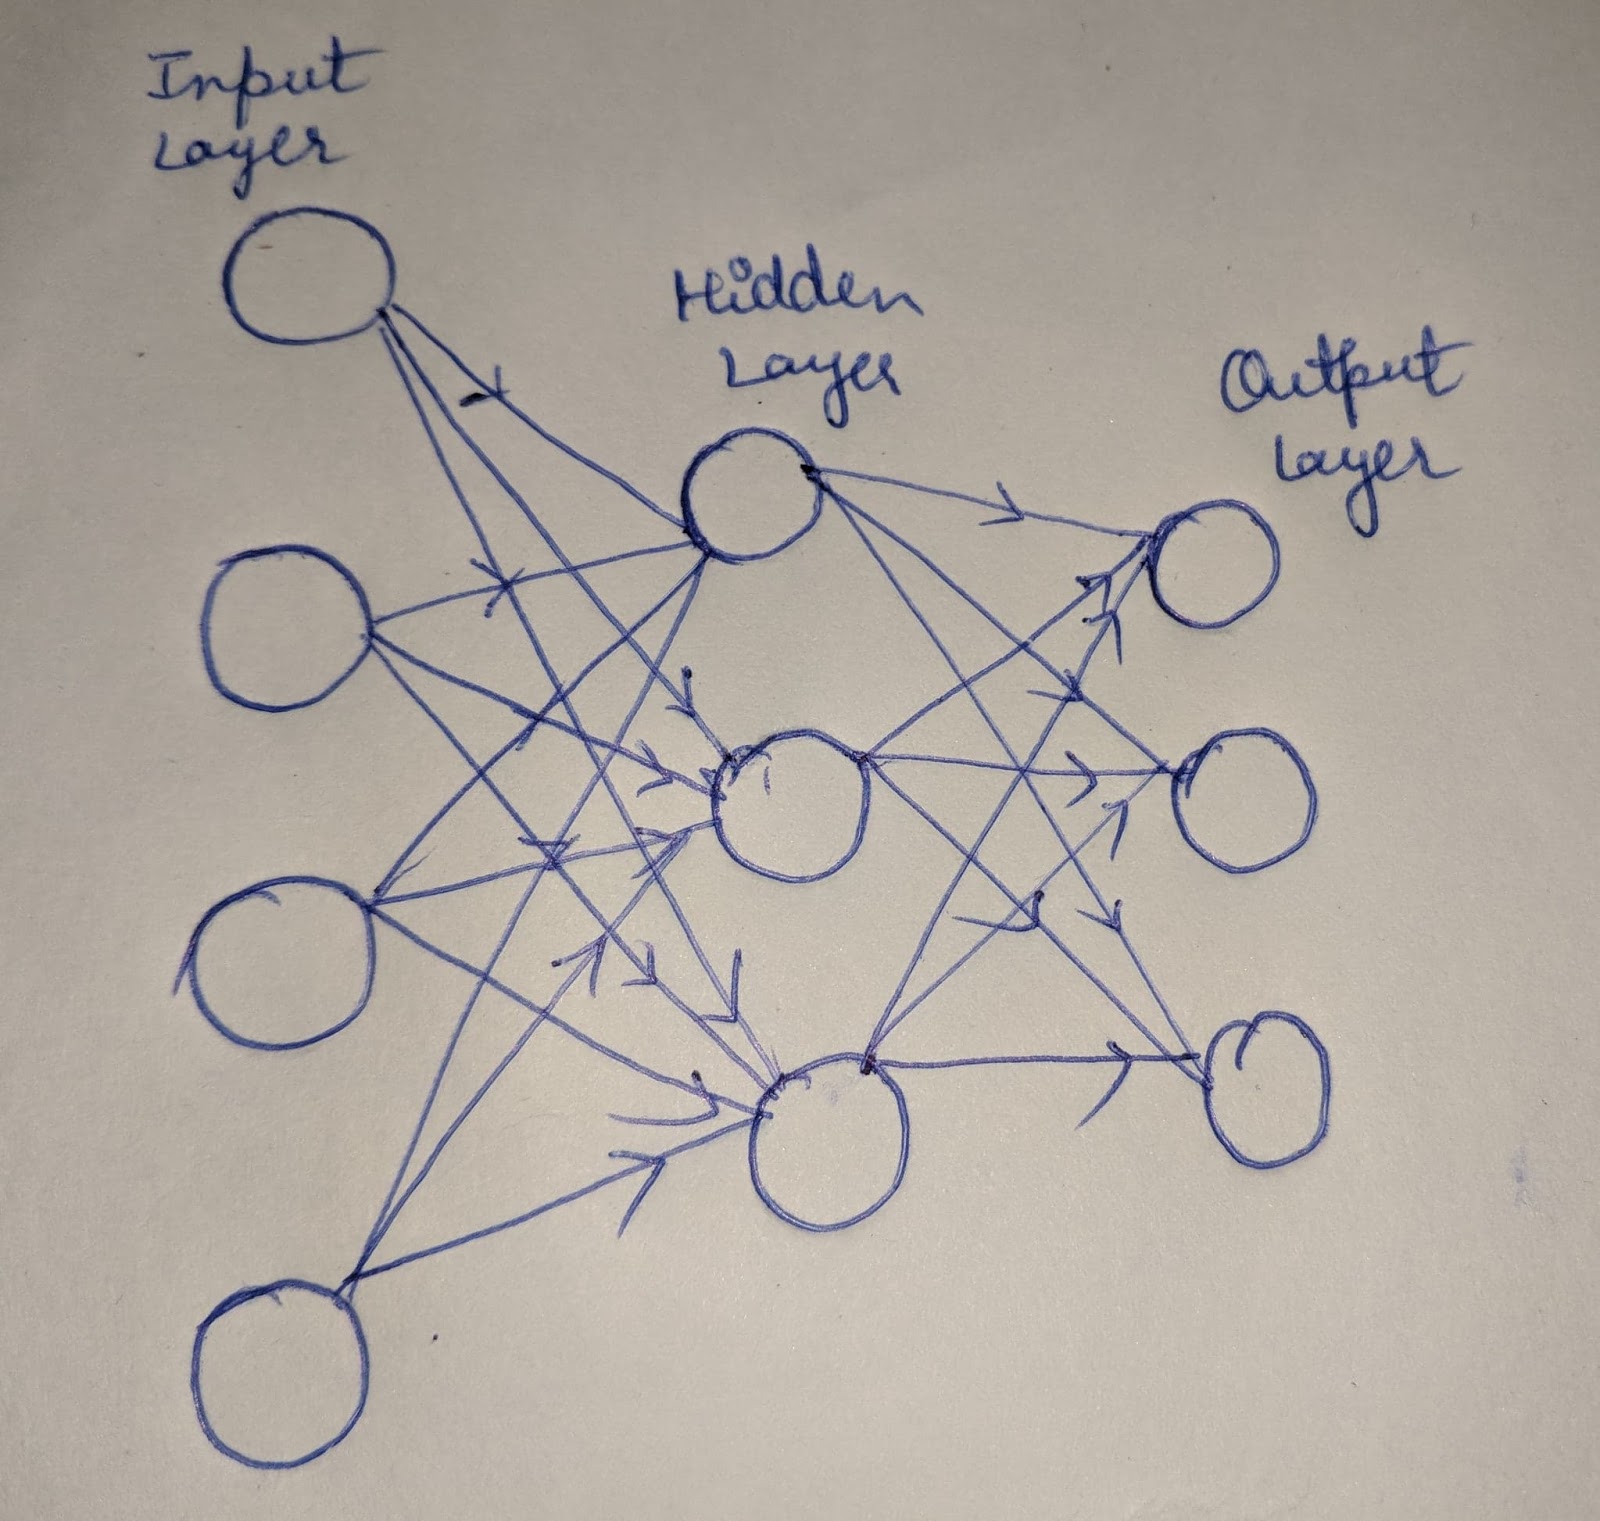 Input
Layer
Hidden
Layer
Output
Layer